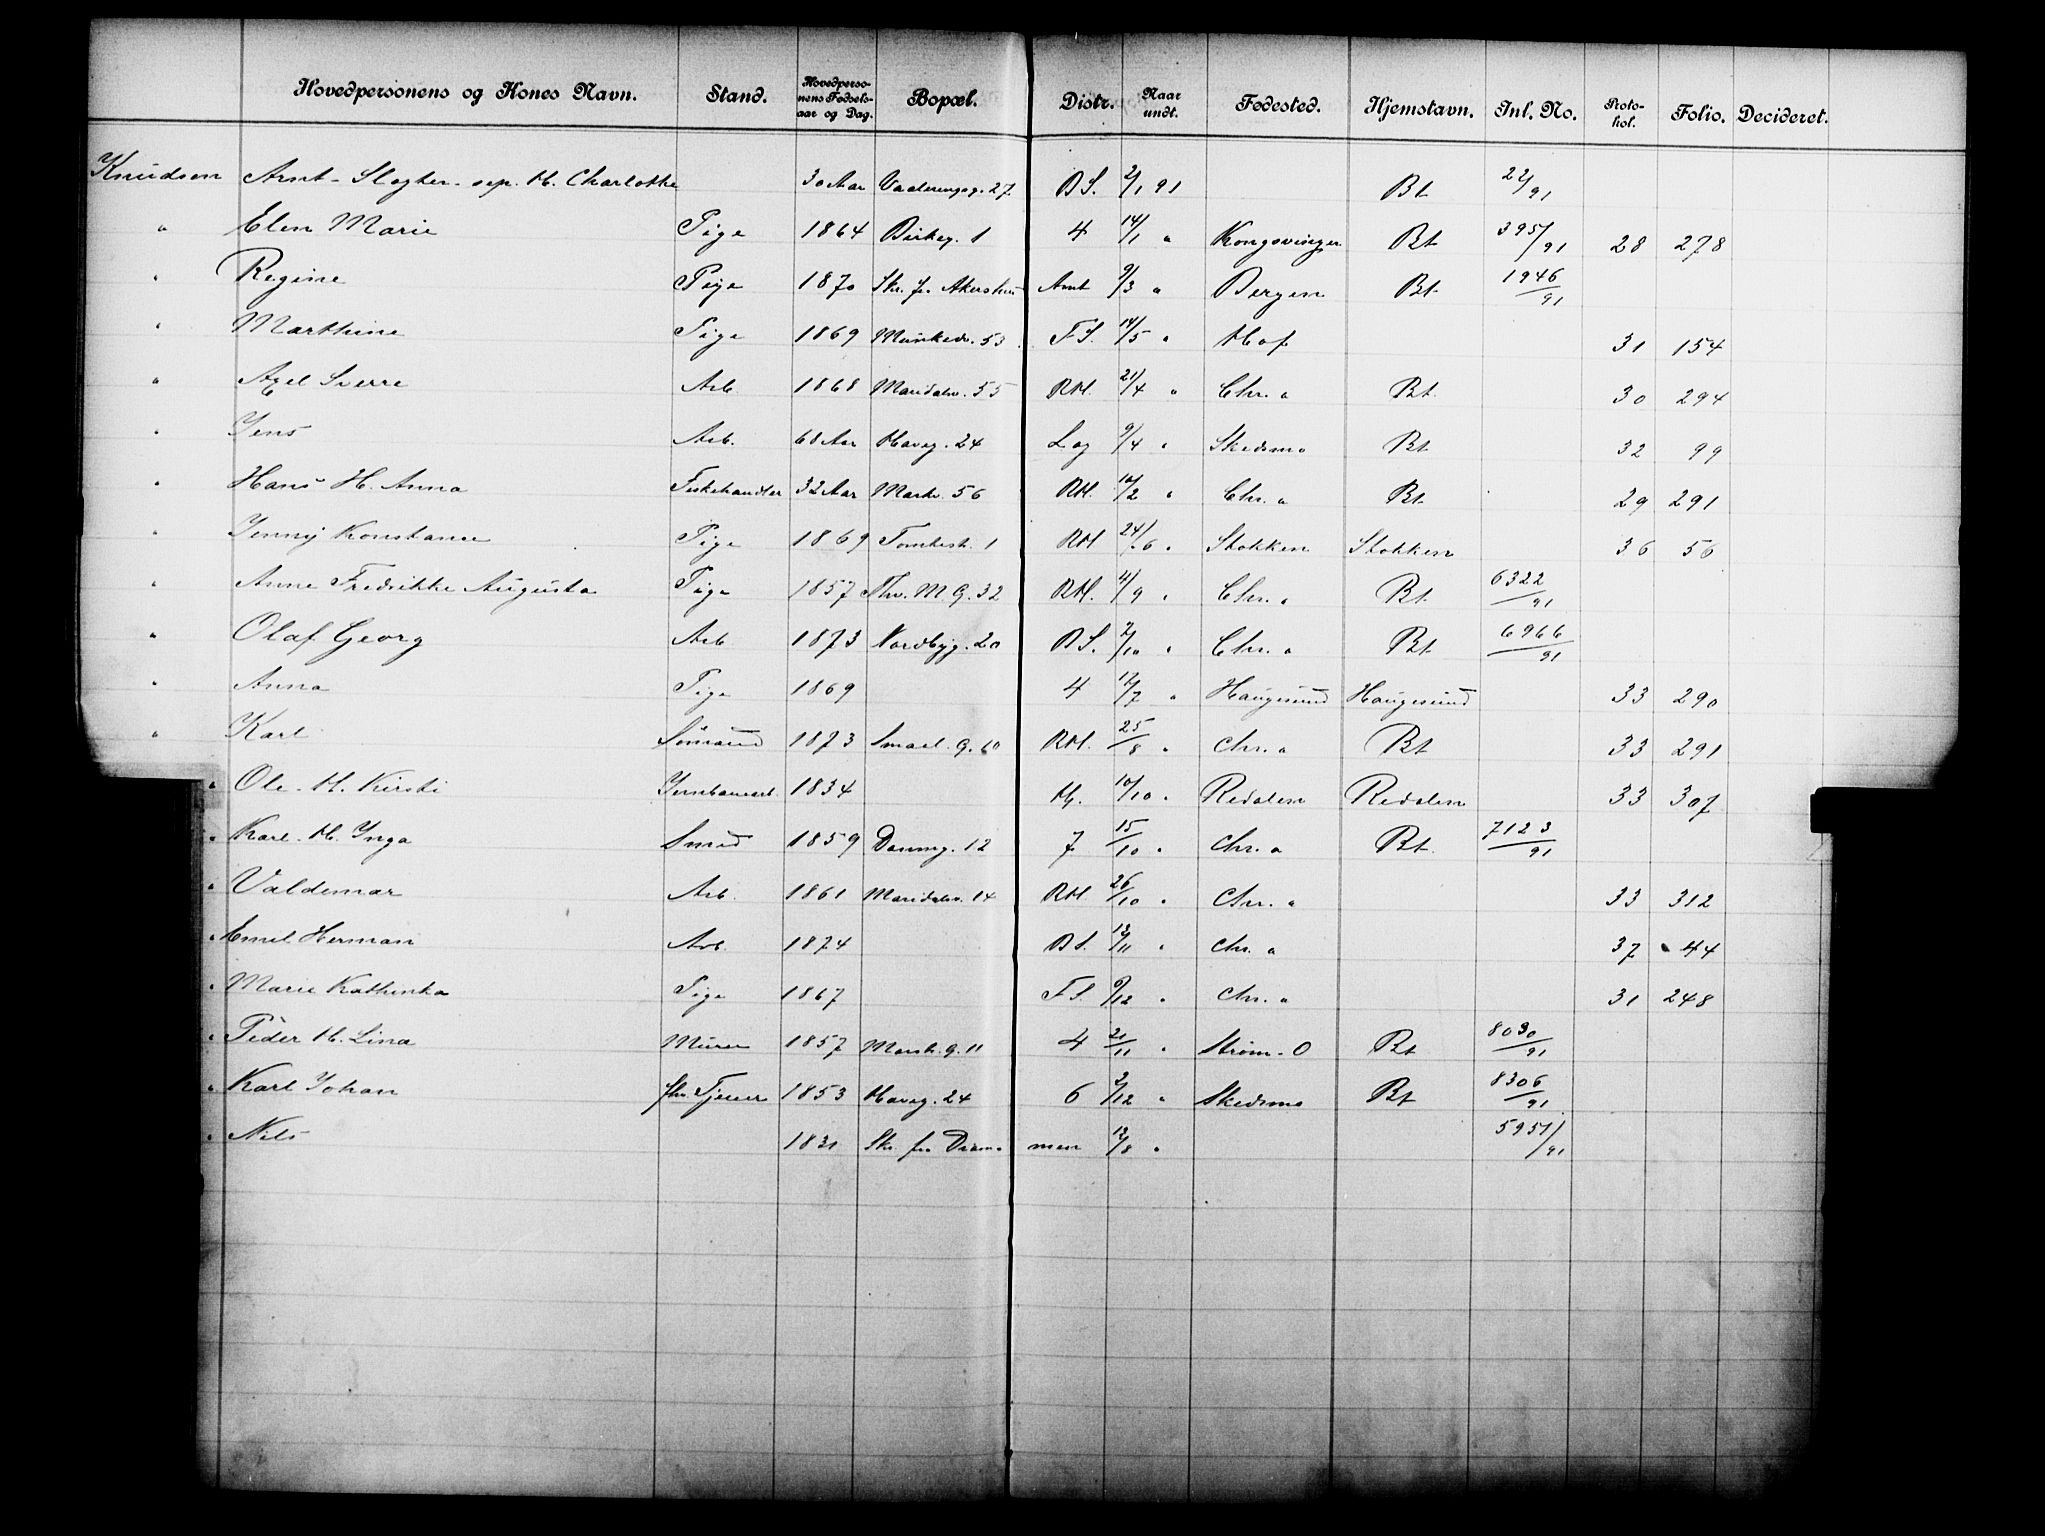 Hovedpersonens og Kones Navn. Stand. Hovedpersonens Fødselsaar og Dag. Bopæl. Distr. Naar undt. Fødested. Hjemstavn. Inl. No. Protokol. Folio. Decideret.
Knudsen Arnt - Slagter - sep. H. Charlotte 30 Aar Vaalerengsg. 27. B S. 2/1 91 Bt 22/91
" Elen Marie Pige 1864 Birkeg. 1 4 14/1 " Kongsvinger Bt 395/91 28 278
" Regine Pige 1870 Skr. fr. Akershus Amt 9/3 " Bergen Bt. 1946/91
" Marthine Pige 1869 Munkedv. 53 F S. 14/5 " Hof 31 154
" Axel Sverre Arb. 1868 Maridalsv. 55 RH. 21/4 " Chr. a Bt. 30 294
" Jens Arb. 60 Aar Haveg. 24 Lag 9/4 " Skedsmo Bt 32 99
" Hans H. Anna Fiskehandler 32 Aar Markv. 56 RH. 10/2 " Chr. a Bt. 29 291
" Jenny Konstance Pige 1869 Tomtest. 1 RH 24/6 " Stokken Stokken 36 56
" Anne Fredrikke Augusta Pige 1857 Thv. M. G. 32 RH. 4/9 " Chr. a Bt. 6322/91
" Olaf Georg Arb 1873 Nordbyg. 20 B S. 2/10 " Chr. a Bt 6966/91
" Anna Pige 1869 4 12/7 " Haugesund Haugesund 33 290
" Karl Sömand 1873 Smael. G. 60 RH. 25/8 " Chr. a Bt 33 291
" Ole - H. Kirsti Jernbanearb. 1834 H. 10/10 " Redalen Redalen 33 307
" Karl - H. Inga Smed 1859 Danmg. 12 7 15/10 " Chr. a Bt. 7123/91
" Valdemar Arb. 1861 Maridalsv. 14 RH. 26/10 " Chr. a 33 312
" Emil Herman Arb. 1874 B S. 12/11 " Chr. a 37 44
" Marie Kathinka Pige 1867 F S. 9/12 " Chr. a 31 248
" Peder H. Lina Murer 1857 Marsk. G. 11 4 21/11 " Strøm - O Bt 8030/91
" Karl Johan fhv. Tjener 1853 Haveg. 24 6 2/12 " Skedsmo Bt 8306/91
" Nils 1831 Skr. fra Drammen 12/8 " 5951/91